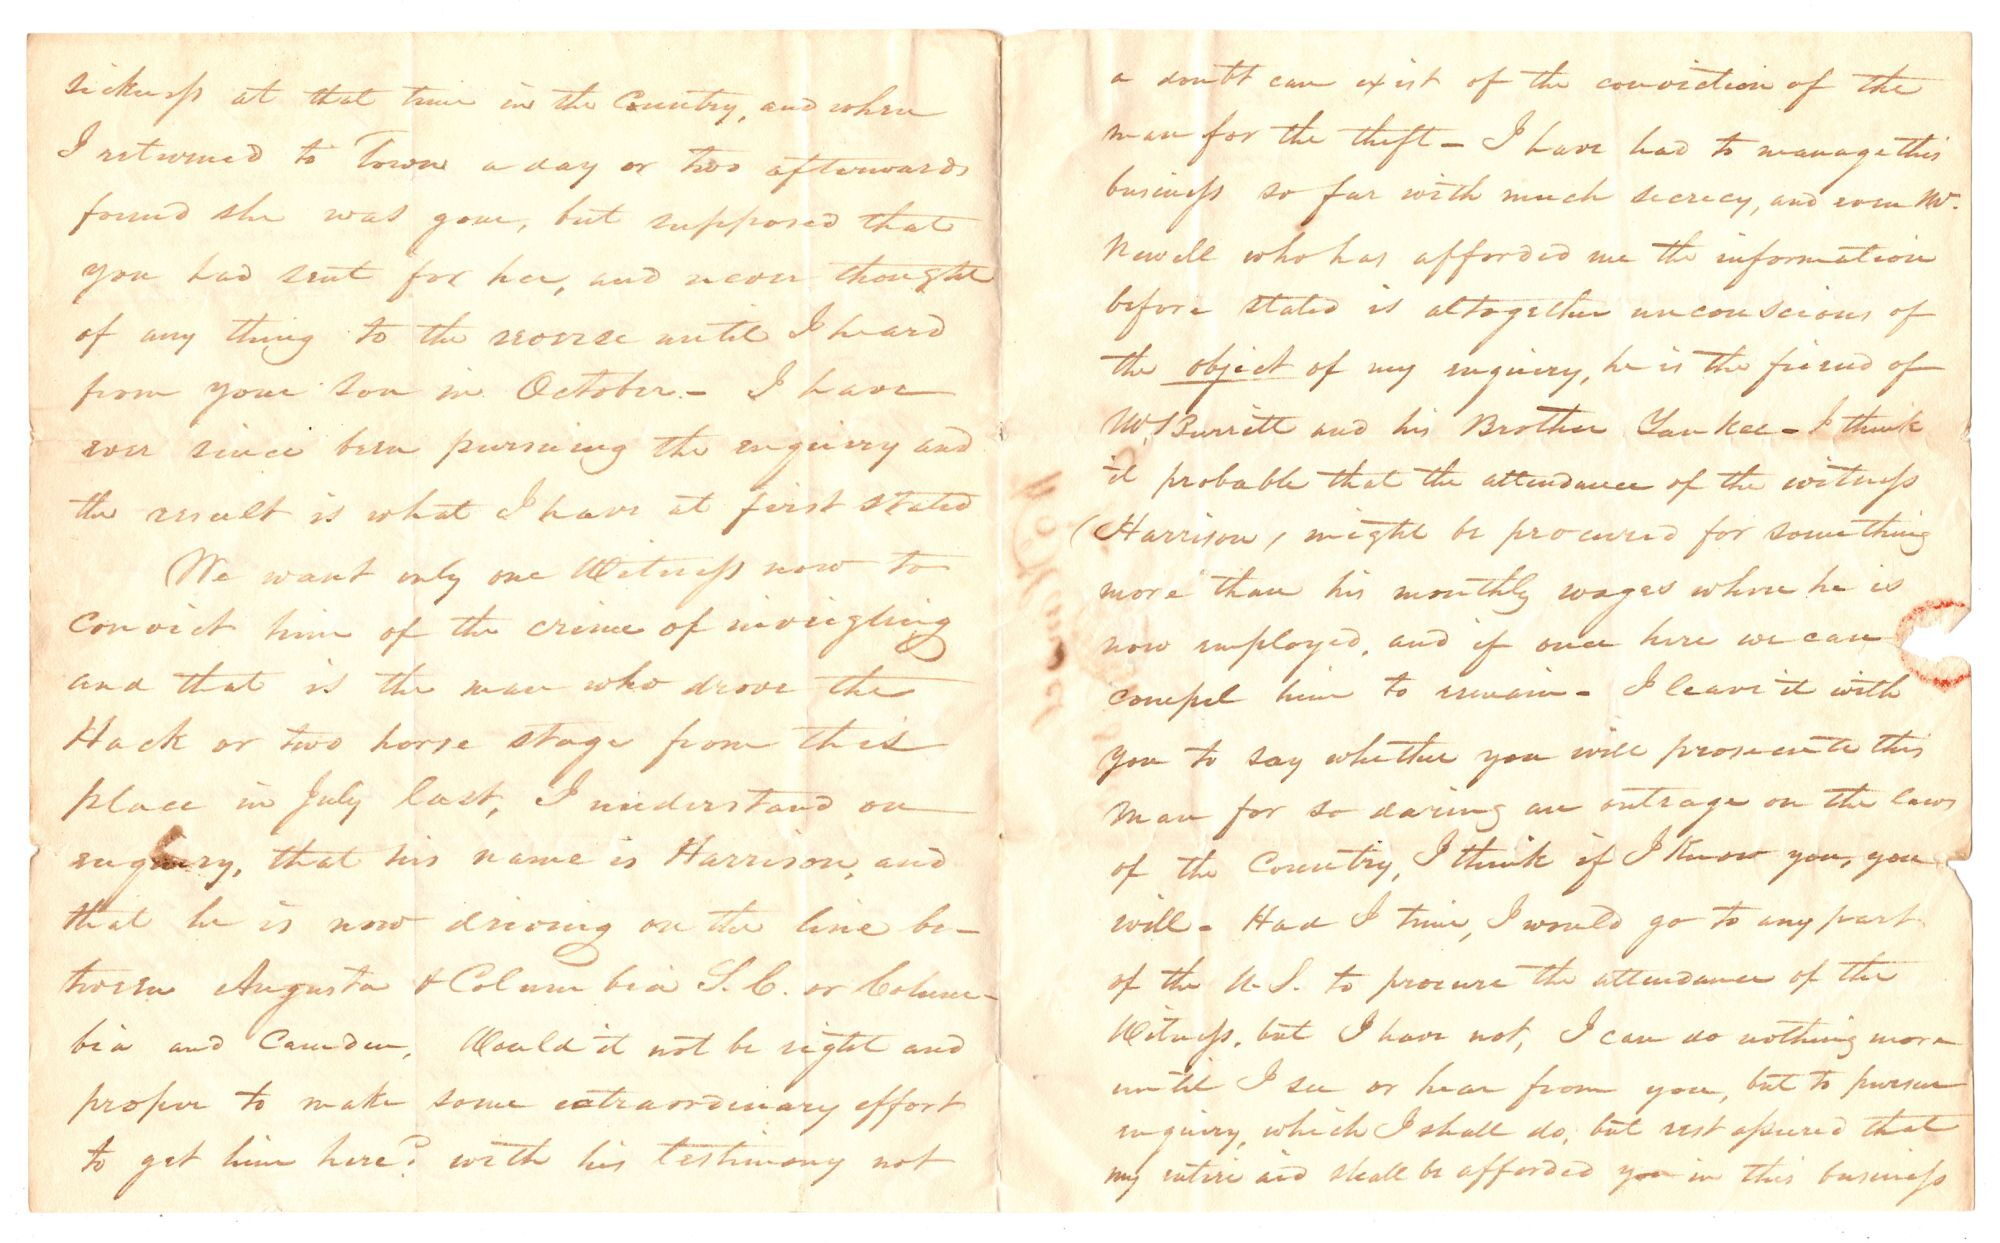 sickness at that time in the Country, and when
I returned to Town a day or two afterwards
found she was gone, but supposed that
you had sent for her, and never thought
of any thing to the reverse until I heard
from your son in October. - I have
ever since been pursuing the enquiry and
the result is what I have at first stated
We want only one Witness now to
convict him of the crime of inveigling
and that is the man who drove the
Hack or two horse stage from this
place in July last, I understand on
enquiry, that his name is Harrison, and
that he is now driving on the line be-
tween Augusta & Columbia S.C. or Colum-
bia and Camden, Would it not be right and
proper to make some extraordinary effort
to get him here? with his testimony not
a doubt can exist of the conviction of the
man for the theft - I have had to manage this
business so far with much secrecy, and even Mr.
Newell who has afforded me the information
before stated is altogether unconscious of
the object of my enquiry, he is the friend of
Mr. Burritt and his Brother Yankee - I think
it probable that the attendance of the witness
(Harrison, might be procured for something
more than his monthly wages where he is
now employed, and if once here we can
compel him to remain - I leave it with
you to say whether you will prosecute this
man for so daring an outrage on the laws
of the Country, I think if I know you, you
will - Had I time, I would go to any part
of the U.S. to procure the attendance of the
Witness, but I have not, I can do nothing more
until I see or hear from you, but to pursue
enquiry, which I shall do, but rest assured that
my entire aid shall be afforded you in this business